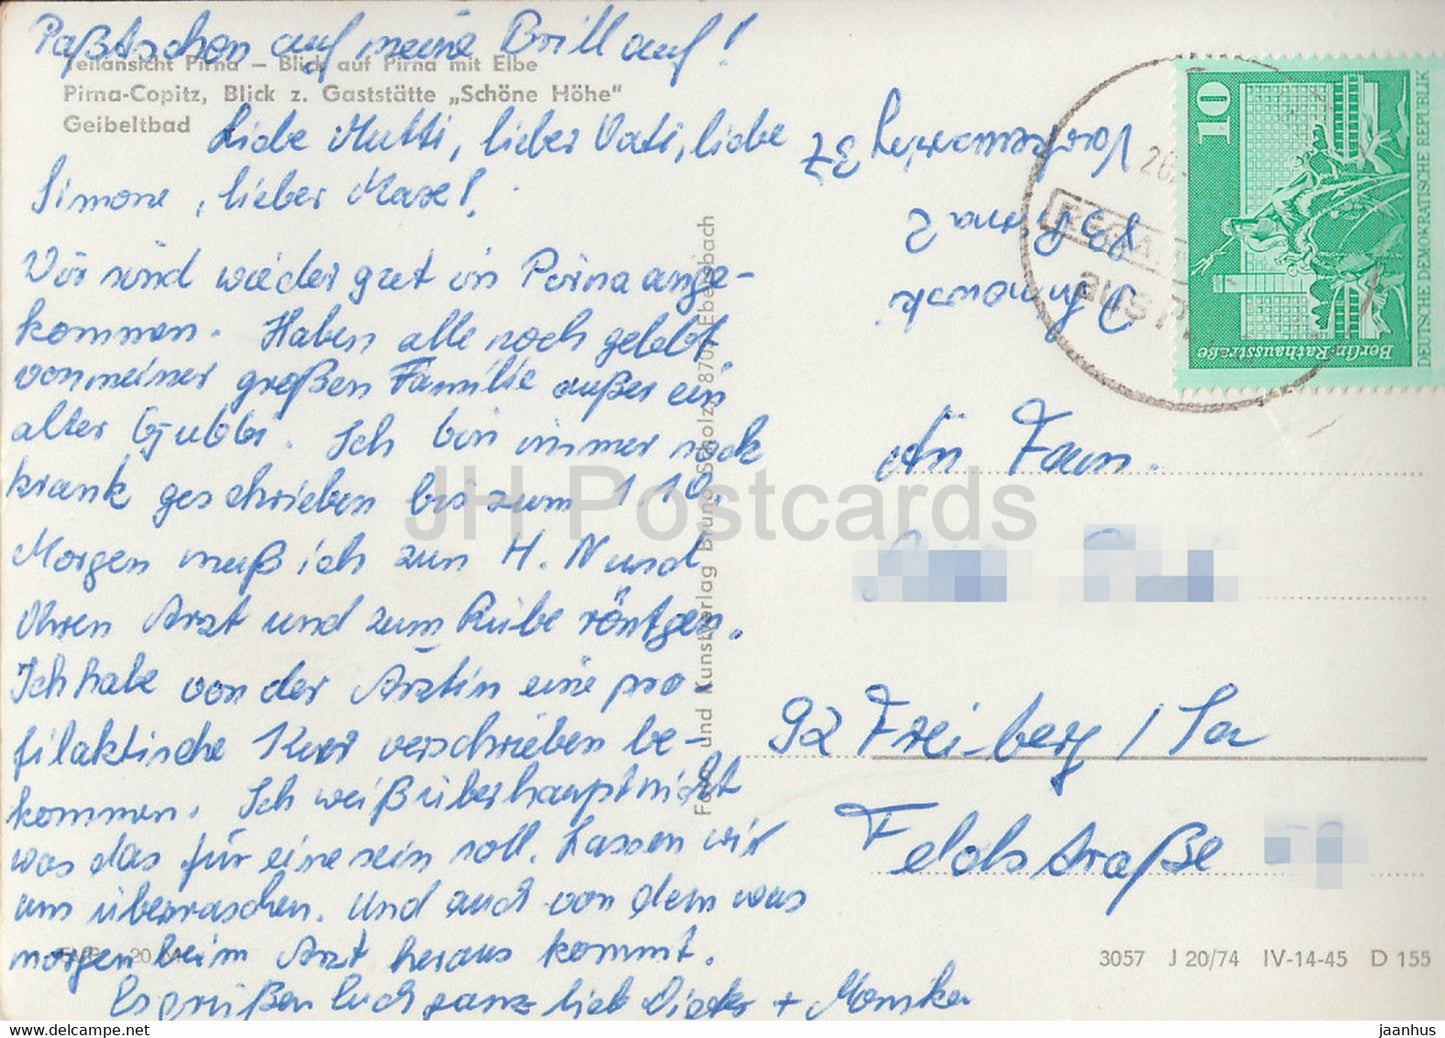 Paßtschon auf meine Brill auf!
Teilansicht Pirna – Blick auf Pirna mit Elbe
Pirna-Copitz, Blick z. Gaststätte „Schöne Höhe"
Geibeltbad
Liebe Mutti, lieber Vati, liebe
Simone, lieber Maxe!
Wir sind wieder gut in Pirna ange-
kommen. Haben alle noch gelebt
von meiner großen Familie außer ein
alter Gubbi. Ich bin immer noch
krank geschrieben bis zum 1.10.
Morgen muß ich zum H. N und
Ohren Arzt und zum Rübe röntgen.
Ich habe von der Ärztin eine pro-
filaktische Kur verschrieben be-
kommen. Ich weiß überhaupt nicht
was das für eine sein soll. Lassen wir
uns überraschen. Und auch von dem was
morgen beim Arzt heraus kommt.
Es grüßen Euch ganz lieb Dieter + Monika
20 M
Foto und Kunstverlag Bruno Scholz, 8701 Ebersbach
Pirna 2
10
Berlin-Rathausstraße
DEUTSCHE DEMOKRATISCHE REPUBLIK
An Fam.
92 Freiberg / Sa
Feldstraße
3057 J 20/74 IV-14-45 D 155
JH Postcards
www.delcampe.net
jaanhus